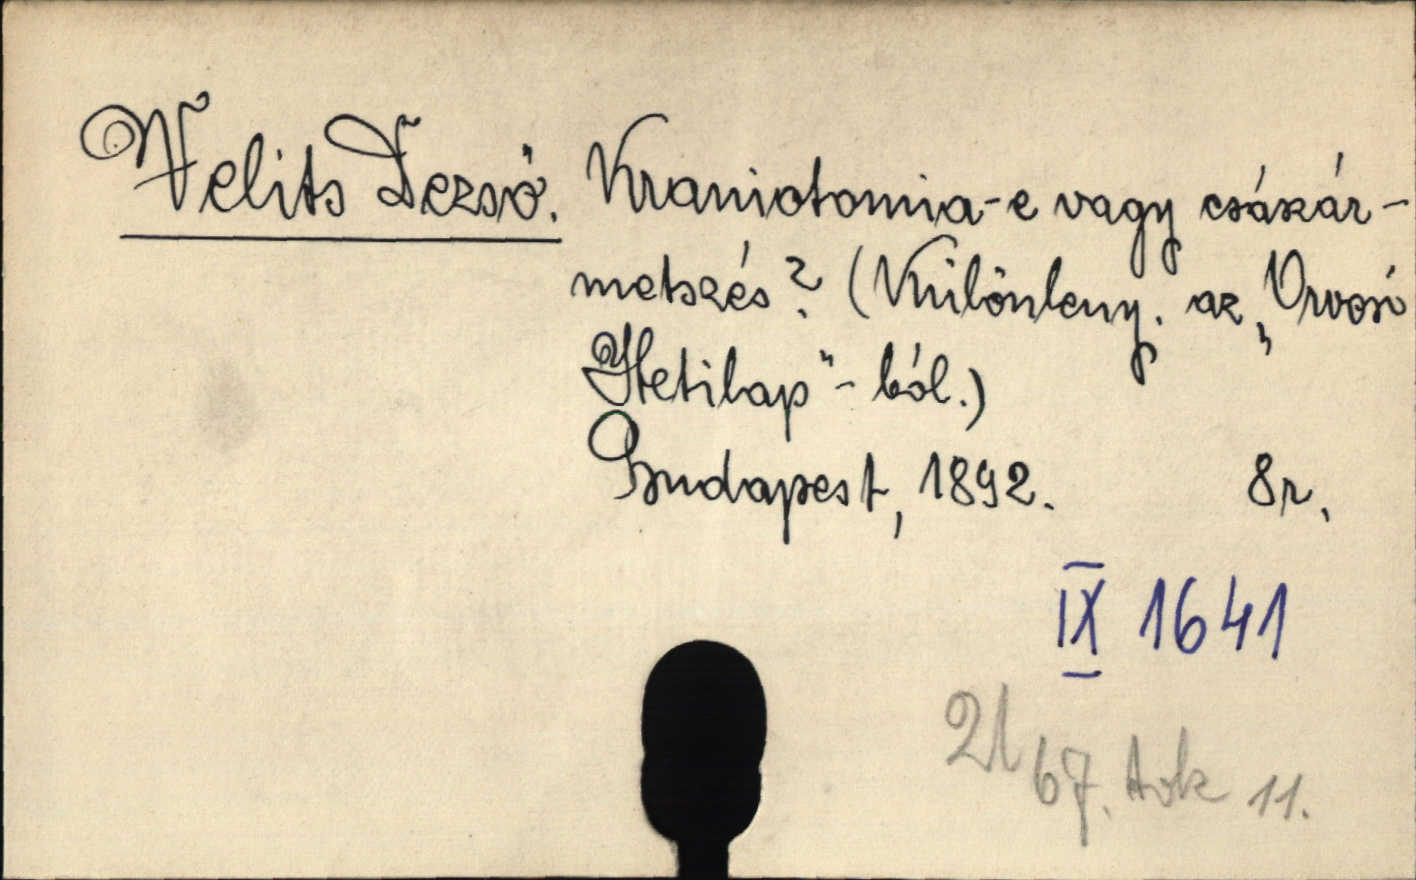 Velits Dezső. Kraniotomia-e vagy császár-
metszés? (Különleny. az „Orvosi
Hetilap"-ból.)
Budapest, 1892. 8r.
IX 1641
21 67. tok 11.